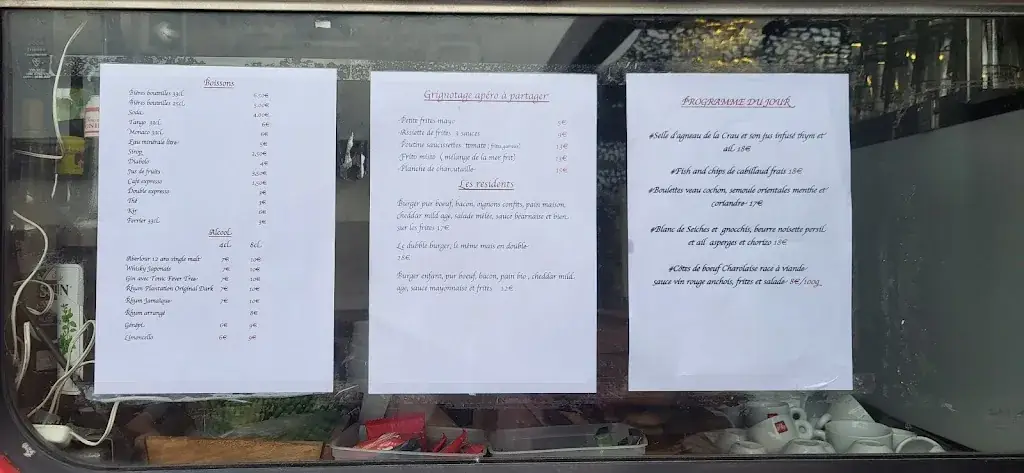 Boissons
Bières bouteilles 33cl 5.50€
Bières bouteilles 25cl 3.00€
Soda 4.00€
Tango 33cl 6€
Monaco 33cl 6€
Eau minérale litre
Sirop 2,50€
Diabolo 4€
Jus de fruits
Café expresso
Double expresso 3€
Thé 3€
Kir 6€
Perrier 33cl
Alcool
4cl 8cl
Aberlour 12 ans single malt 7€ 10€
Whisky Japonais 7€ 10€
Gin avec Tonic Fever Tree 7€ 10€
Rhum Plantation Original Dark 7€ 10€
Rhum Jamaïque 7€ 10€
Rhum arrangé 8€
Génépi 6€ 9€
Limoncello 6€ 9€
Grignotage apéro à partager
-Petite frites mayo 5€
-Assiette de frites 3 sauces 9€
-Poutine saucissettes tomate
-Frito misto (mélange de la mer frit)
-Planche de charcutaille
Les résidents
Burger pur boeuf, bacon, oignons confits, pain maison,
cheddar mild age, salade mêlée, sauce béarnaise et bien
sur les frites 17€
Le dubble burger, le même mais en double
18€
Burger enfant, pur boeuf, bacon, pain bio, cheddar mild
age, sauce mayonnaise et frites 12€
PROGRAMME DU JOUR
#Selle d'agneau de la Crau et son jus infusé thym et
ail 18€
#Fish and chips de cabillaud frais 18€
#Boulettes veau cochon, semoule orientales menthe et
coriandre 17€
#Blanc de Seiches et gnocchis, beurre noisette persil
et ail asperges et chorizo 18€
#Côtes de boeuf Charolaise race à viande
sauce vin rouge anchois, frites et salade 8€/100g
illy